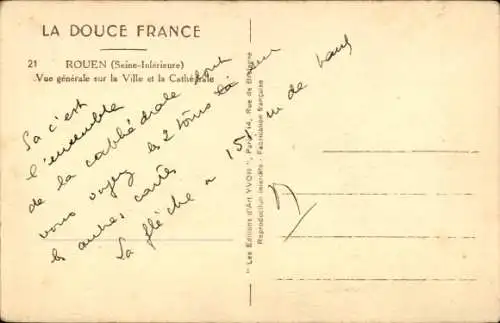 LA DOUCE FRANCE
21 ROUEN (Seine-Inférieure)
Vue générale sur la Ville et la Cathédrale
Sa c'est
l'ensemble
de la cathédrale dont
vous voyez les 2 tours sur
les autres cartes
La flèche a 15 m de haut
" Les Editions d'Art YVON ", Paris, 14, Rue de Bretagne
Reproduction interdite - Fabrication française